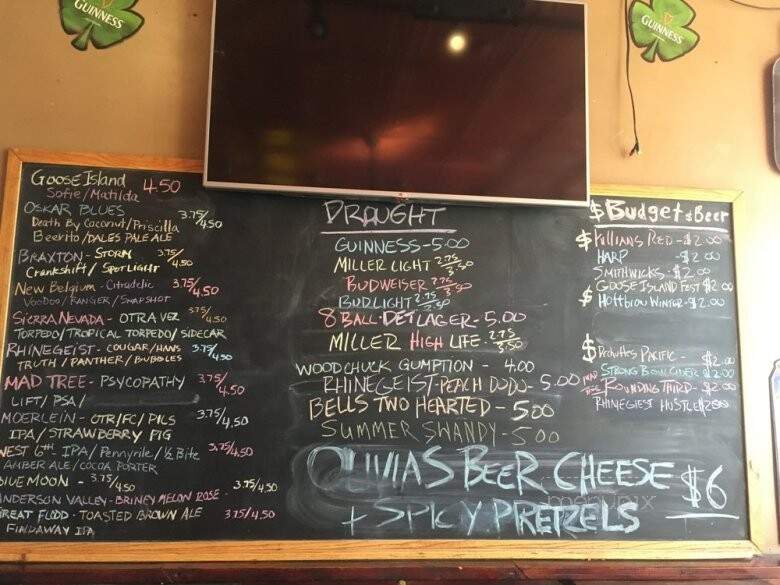 GUINNESS
GUINNESS
GOOSE ISLAND 4.50
Sofie/Matilda
OSKAR BLUES 3.75/4.50
Death By Coconut/Priscilla
Beerito/DALES PALE ALE
BRAXTON - STORM 3.75/4.50
Crankshift/SPOTLIGHT
New Belgium - Citradelic 3.75/4.50
VOODOO/RANGER/SNAPSHOT
SIERRA NEVADA - OTRA VEZ 3.75/4.50
TORPEDO/TROPICAL TORPEDO/SIDECAR
RHINEGEIST - COUGAR/HANS 3.75/4.50
TRUTH/PANTHER/BUBBLES
MAD TREE - PSYCOPATHY 3.75/4.50
LIFT/PSA/
MOERLEIN - OTR/FC/PILS 3.75/4.50
IPA/STRAWBERRY PIG
WEST 6th IPA/Pennyrile/½ Bite 3.75/4.50
AMBER ALE/COCOA PORTER
BLUE MOON - 3.75/4.50
ANDERSON VALLEY - BRINEY MELON ROSE - 3.75/4.50
GREAT FLOOD - TOASTED BROWN ALE 3.75/4.50
FINDAWAY IPA
DRAUGHT
GUINNESS - 5.00
MILLER LIGHT 2.75/3.50
BUDWEISER 2.75/3.50
BUDLIGHT 2.75/3.50
8 BALL - DET LAGER - 5.00
MILLER HIGH LIFE - 2.75/3.50
WOODCHUCK GUMPTION - 4.00
RHINEGEIST - PEACH DODO - 5.00
BELLS TWO HEARTED - 5.00
SUMMER SHANDY - 5.00
OLIVIAS BEER CHEESE $6
+ SPICY PRETZELS
menupix
$ Budget $ Beer
$ Killians RED - $2.00
HARP - $2.00
SMITHWICKS - $2.00
GOOSE ISLAND FEST $2.00
$ Hoffbrow WINTER - $2.00
$ Deschutes PACIFIC - $2.00
STRONG BOW CIDER $2.00
MAD TREE ROUNDING THIRD - $2.00
RHINEGIEST HUSTLE $2.00